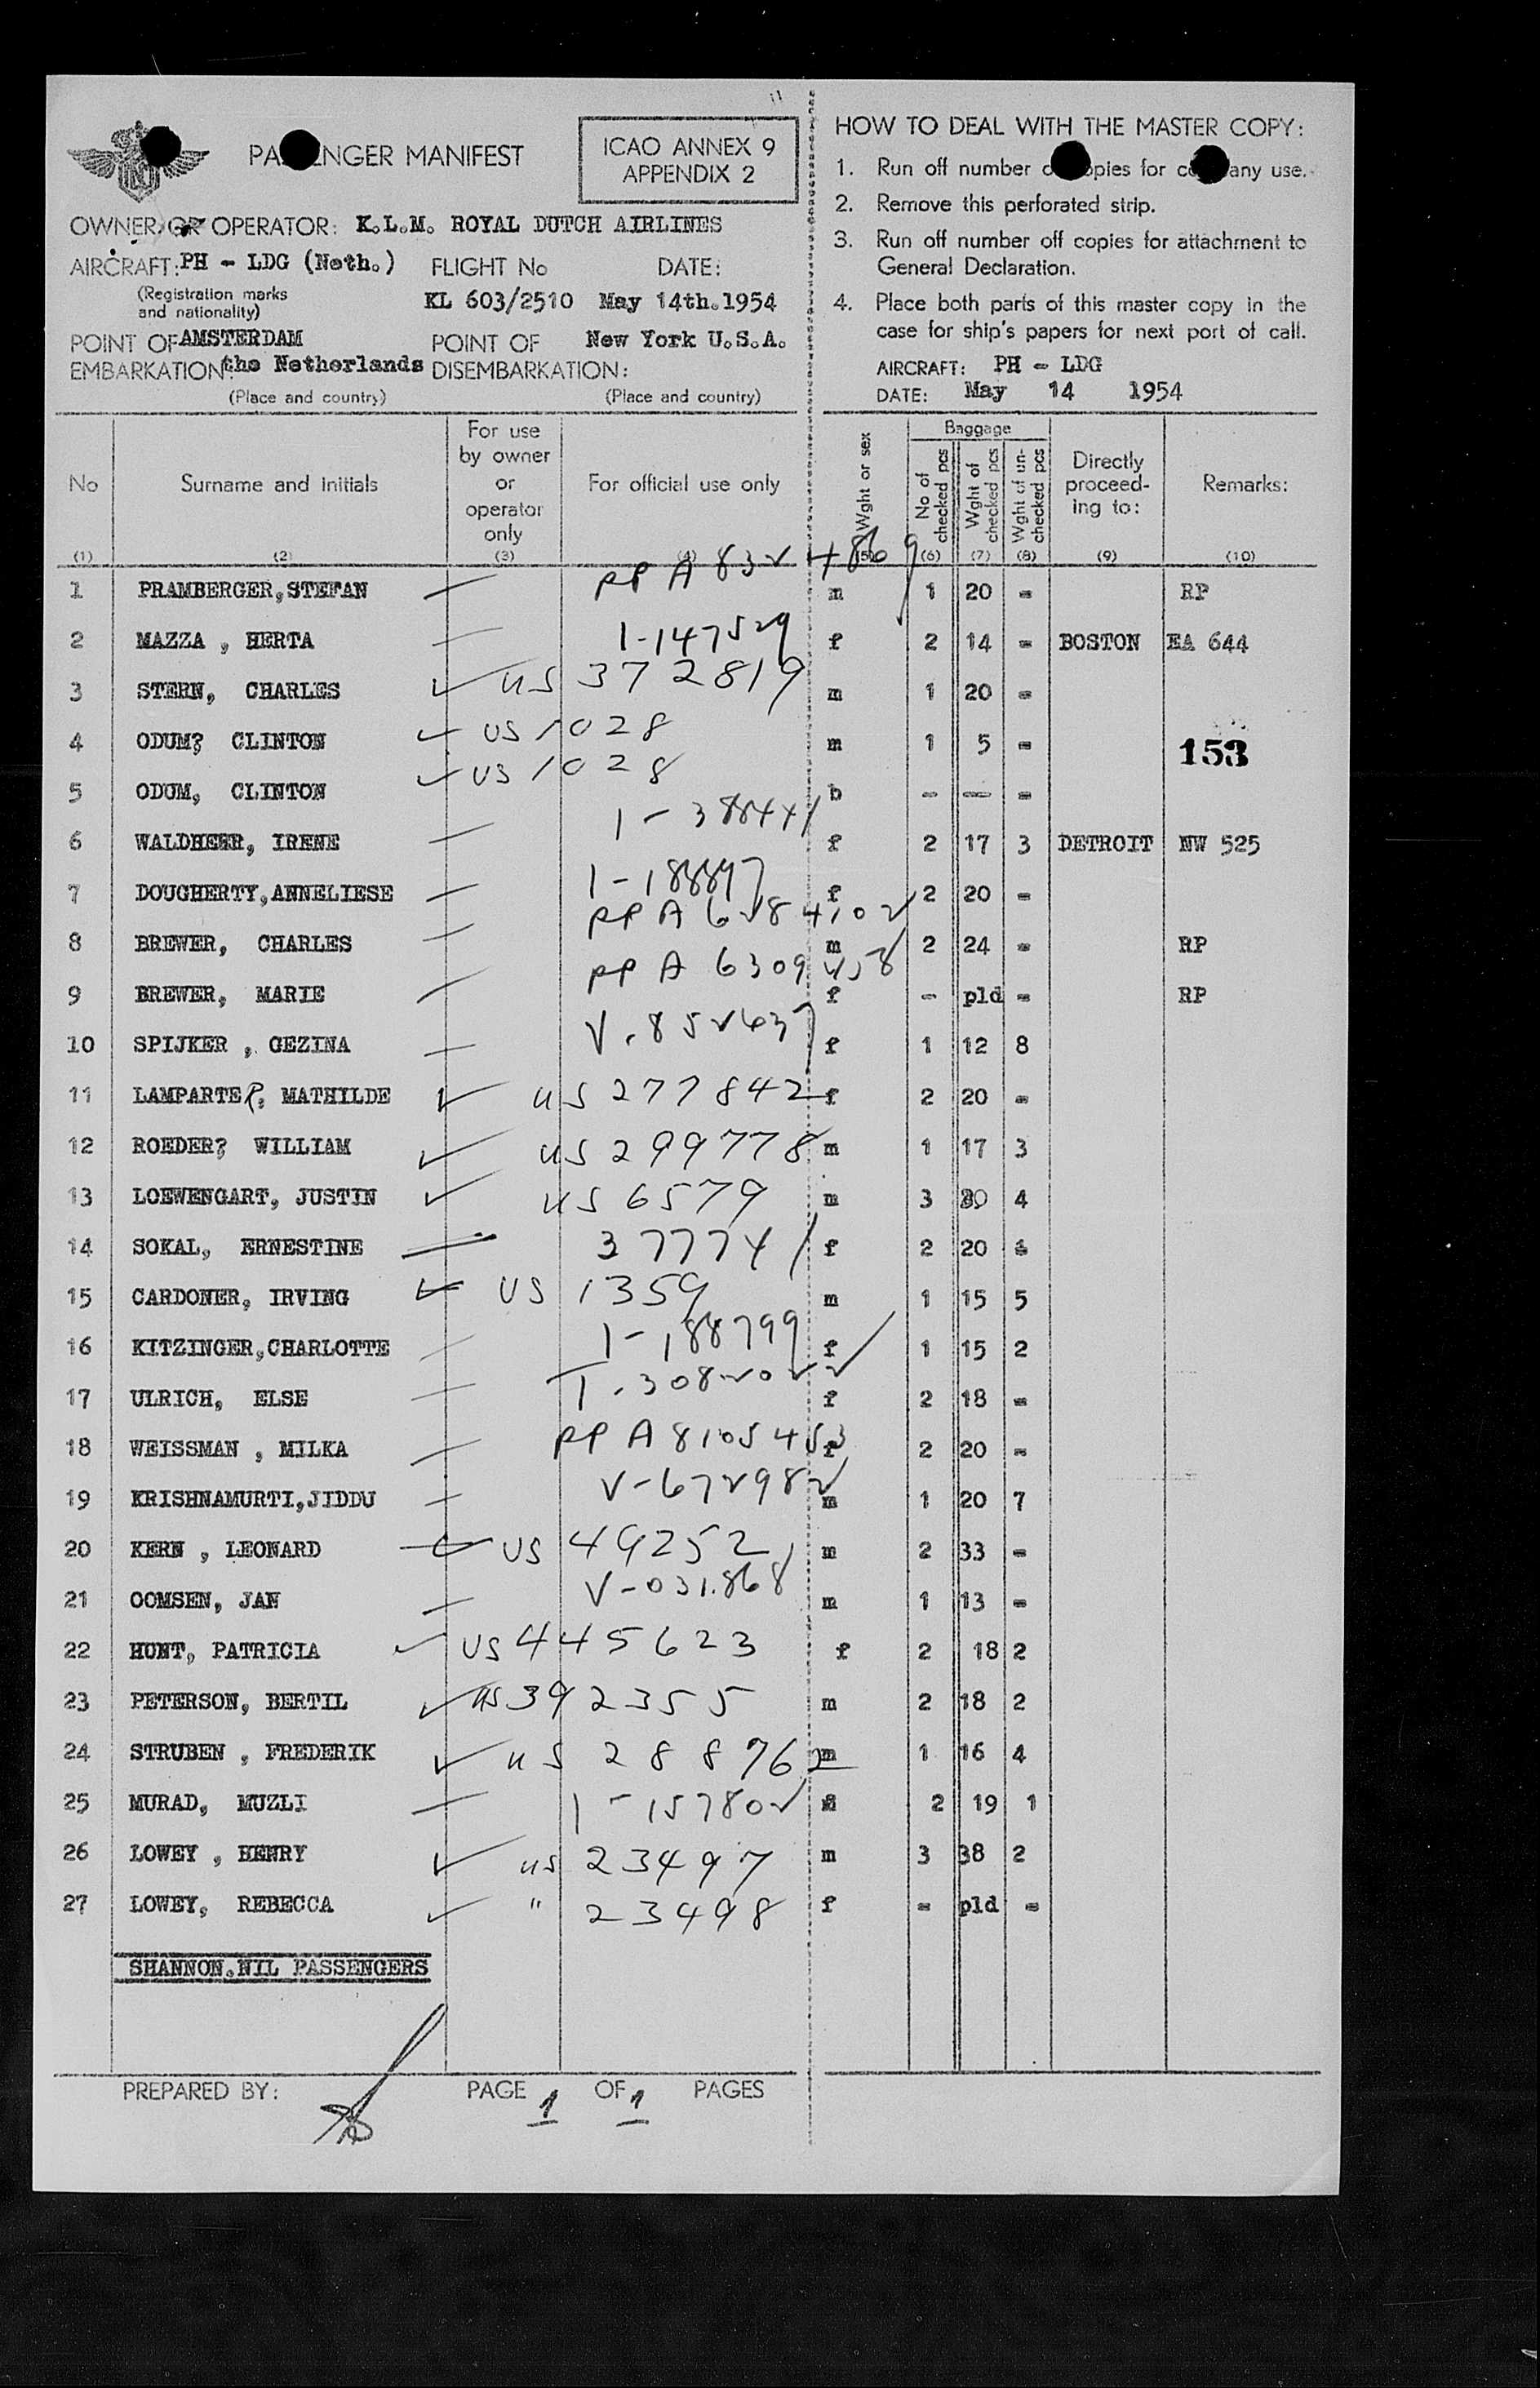 PASSENGER MANIFEST
ICAO ANNEX 9
APPENDIX 2
OWNER OR OPERATOR: K.L.M. ROYAL DUTCH AIRLINES
AIRCRAFT: PH - LDG (Neth.) FLIGHT No DATE:
(Registration marks and nationality) KL 603/2510 May 14th.1954
POINT OF EMBARKATION: AMSTERDAM the Netherlands POINT OF DISEMBARKATION: New York U.S.A.
(Place and country) (Place and country)
HOW TO DEAL WITH THE MASTER COPY:
1. Run off number of copies for company use.
2. Remove this perforated strip.
3. Run off number off copies for attachment to
General Declaration.
4. Place both parts of this master copy in the
case for ship's papers for next port of call.
AIRCRAFT: PH - LDG
DATE: May 14 1954
No Surname and Initials For use by owner or operator only For official use only Wght or sex Baggage No of checked pcs Wght of checked pcs Wght of un-checked pcs Directly proceed-ing to: Remarks:
(1) (2) (3) (4) (5) (6) (7) (8) (9) (10)
1 PRAMBERGER,STEFAN — PP A 832 4869 m 1 20 - RP
2 MAZZA , HERTA — 1-147529 f 2 14 - BOSTON EA 644
3 STERN, CHARLES ✓ US 372819 m 1 20 -
4 ODUM? CLINTON ✓ US 1028 m 1 5 - 153
5 ODUM, CLINTON ✓ US 1028 b - — -
6 WALDHEHR, IRENE — 1-388441 f 2 17 3 DETROIT NW 525
7 DOUGHERTY,ANNELIESE — 1-188897 f 2 20 -
8 BREWER, CHARLES — PP A 6284102 m 2 24 - RP
9 BREWER, MARIE — PP A 6309458 f - pld - RP
10 SPIJKER , GEZINA — V.852637 f 1 12 8
11 LAMPARTER, MATHILDE ✓ US 277842 f 2 20 -
12 ROEDER? WILLIAM ✓ US 299778 m 1 17 3
13 LOEWENGART, JUSTIN ✓ US 6579 m 3 4
14 SOKAL, ERNESTINE — 377741 f 2 20
15 CARDONER, IRVING ✓ US 1359 m 1 15 5
16 KITZINGER,CHARLOTTE — 1-188799 f 1 15 2
17 ULRICH, ELSE — T.3082022 f 2 18 -
18 WEISSMAN , MILKA — PP A 8105453 f 2 20 -
19 KRISHNAMURTI,JIDDU — V-672982 m 1 20 7
20 KERN , LEONARD ✓ US 49252 m 2 33 -
21 OOMSEN, JAN — V-031.868 m 1 13 -
22 HUNT, PATRICIA ✓ US 445623 f 2 18 2
23 PETERSON, BERTIL ✓ US 392355 m 2 18 2
24 STRUBEN , FREDERIK ✓ US 288762 m 1 16 4
25 MURAD, MUZLI — 1-157802 2 19 1
26 LOWEY , HENRY ✓ US 23497 m 3 38 2
27 LOWEY, REBECCA ✓ " 23498 f - pld -
SHANNON.NIL PASSENGERS
PREPARED BY: PAGE 1 OF 1 PAGES